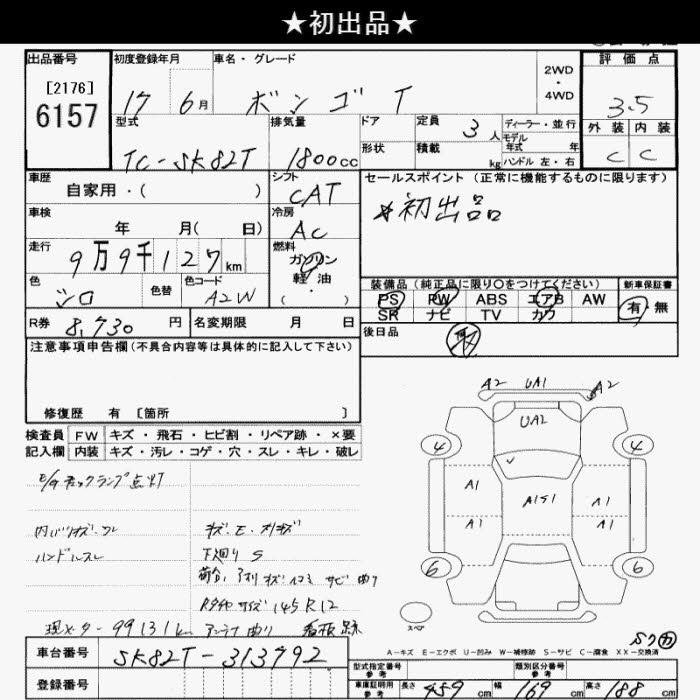 ★初出品★
出品番号 初度登録年月 車名・グレード 2WD・4WD 評価点
[2176]
6157 17年 6月 ボンゴT 3.5
型式 排気量 ドア 定員 3人 ディーラー・並行 外装 内装
モデル年式 年
TC-SK82T 1800cc 形状 積載 kg ハンドル 左・右 C C
車歴 シフト セールスポイント(正常に機能するものに限ります)
自家用・( ) CAT *初出品
車検 冷房
年 月( 日) AC
走行 燃料
9万9千127km ガソリン 軽油・( )
色 色替 色コード 装備品(純正品に限り○をつけてください) 新車保証書
シロ A2W PS PW ABS エアB AW 有 無
SR ナビ TV カワ
R券 8,730円 名変期限 月 日 後日品
注意事項申告欄(不具合内容等は具体的に記入して下さい)
修復歴 有 [箇所 ]
検査員 FW キズ・飛石・ヒビ割・リペア跡・×要
記入欄 内装 キズ・汚レ・コゲ・穴・スレ・キレ・破レ
E/Gチェックランプ点灯
ハンドルスレ 下廻りS
Rタイヤサイズ145R12
現メーター99131km アンテナ曲り 看板跡
A2 UA1 A2
UA2
4 4
A1 A1S1 A1
A1 A1
6 6
スペア
A-キズ E-エクボ U-凹み W-補修跡 S-サビ C-腐食 XX-交換済
車台番号 SK82T-313792
登録番号
型式指定番号 参考 類別区分番号 参考
車庫証明用 参考 長さ 459cm 幅 169cm 高さ 188cm